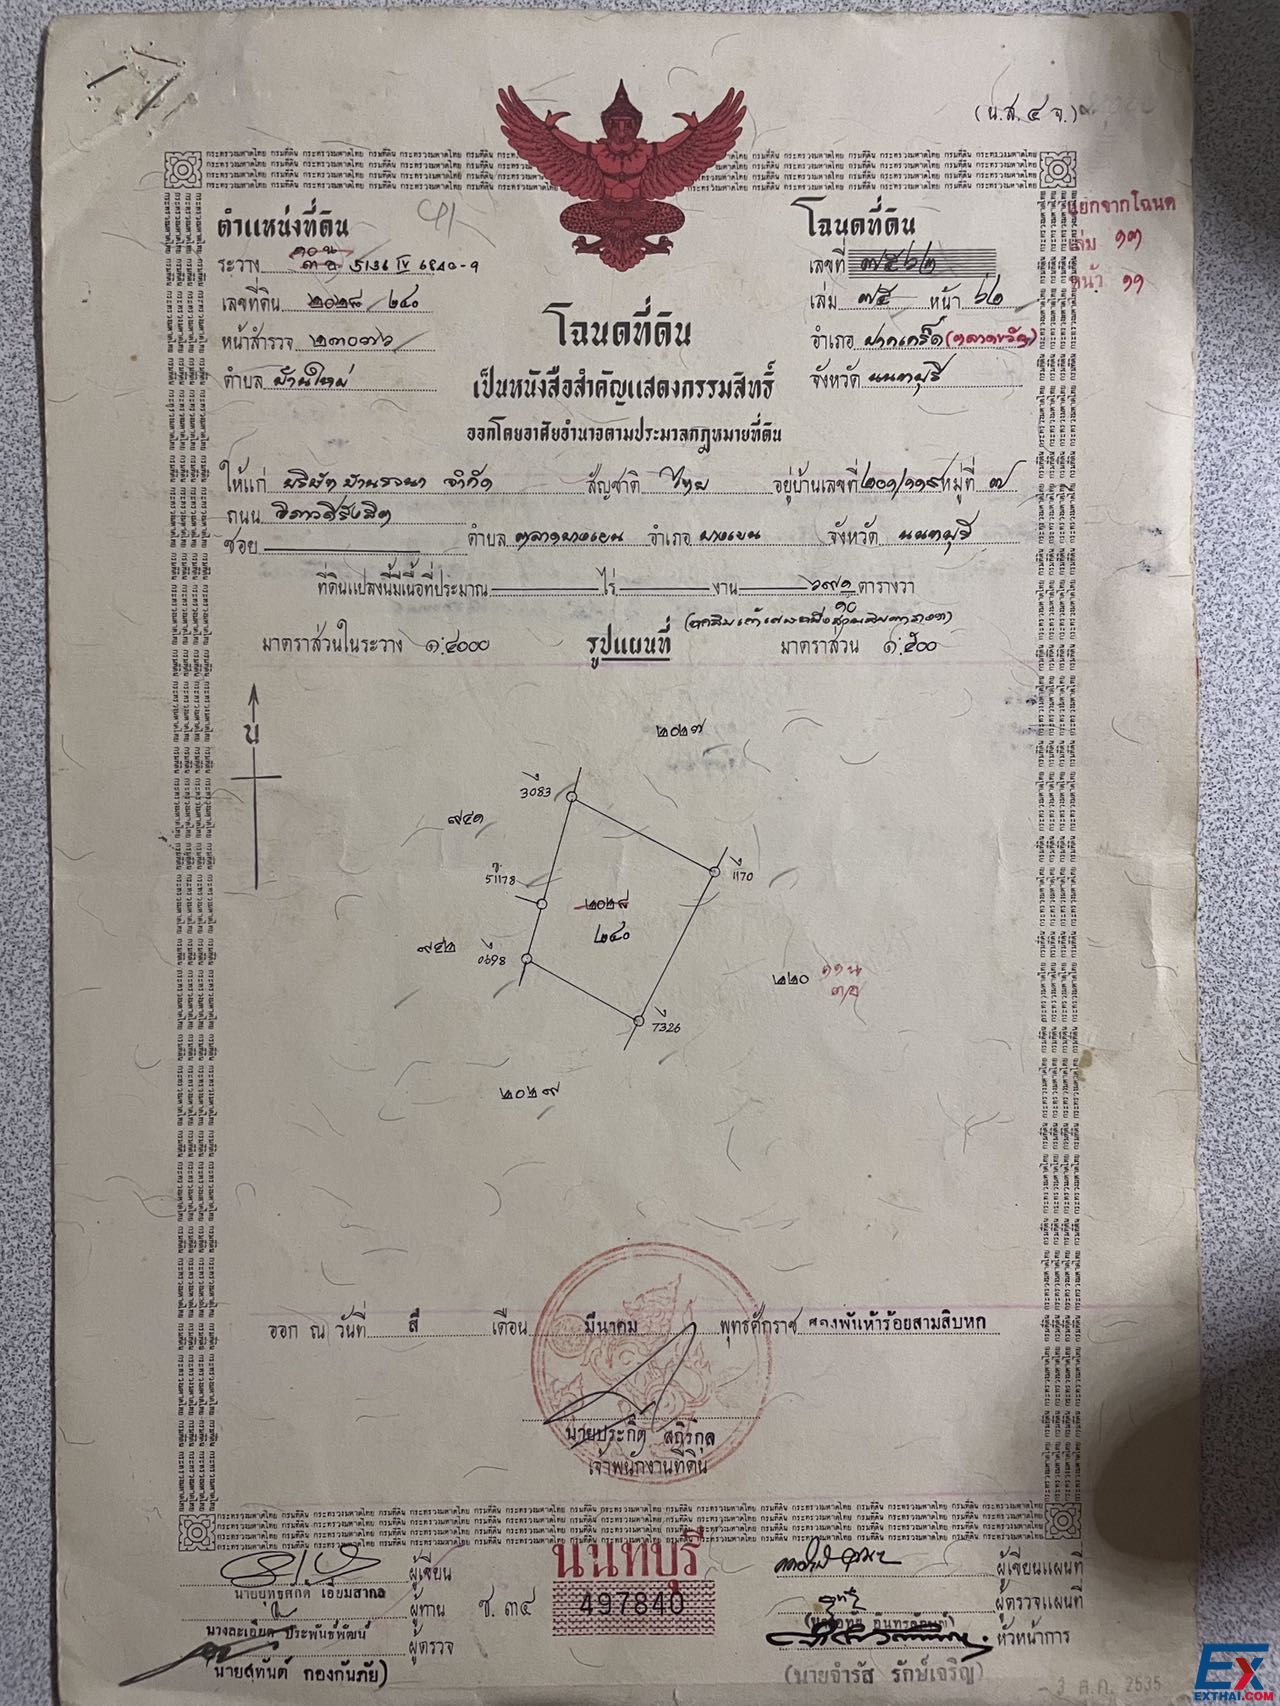 (น.ส.๔ จ.)
ตำแหน่งที่ดิน
ระวาง 5136 IV 6840-9
เลขที่ดิน ๒๐๒๘ / ๒๔๐
หน้าสำรวจ ๒๓๐๗๖
ตำบล บ้านใหม่
โฉนดที่ดิน
เลขที่ ๗๕๖๒
เล่ม ๗๕ หน้า ๖๒
อำเภอ ปากเกร็ด (ตลาดขวัญ)
จังหวัด นนทบุรี
แยกจากโฉนด
เล่ม ๑๓
หน้า ๑๑
โฉนดที่ดิน
เป็นหนังสือสำคัญแสดงกรรมสิทธิ์
ออกโดยอาศัยอำนาจตามประมวลกฎหมายที่ดิน
ให้แก่ บริษัท บ้านรจนา จำกัด สัญชาติ ไทย อยู่บ้านเลขที่ ๒๐๑/๑๑๙ หมู่ที่ ๗
ถนน วิภาวดีรังสิต
ซอย ตำบล ตลาดบางเขน อำเภอ บางเขน จังหวัด นนทบุรี
ที่ดินแปลงนี้มีเนื้อที่ประมาณ ไร่ งาน ๖๙ ๑/๑๐ ตารางวา
(หกสิบเก้าเศษหนึ่งส่วนสิบตารางวา)
มาตราส่วนในระวาง ๑:๔๐๐๐ รูปแผนที่ มาตราส่วน ๑:๕๐๐
น
๒๐๒๗
3083
๙๔๑
1170
51178
๒๐๒๘
๒๔๐
๙๔๒
0698
๒๒๐
7326
๒๐๒๙
ออก ณ วันที่ สี่ เดือน มีนาคม พุทธศักราช สองพันห้าร้อยสามสิบหก
นายประกิต สถิรกุล
เจ้าพนักงานที่ดิน
ผู้เขียน
นายยุทธศักดิ์ เอี่ยมสากล
ผู้ทาน
นางละเอียด ประพันธ์พัฒน์
ผู้ตรวจ
(นายสุทันต์ กองกันภัย)
ช.๓๔
นนทบุรี
497840
ผู้เขียนแผนที่
ผู้ตรวจแผนที่
หัวหน้าการ
(นายจำรัส รักษ์เจริญ)
3 ส.ค. 2535
EX
EXTHAI.COM